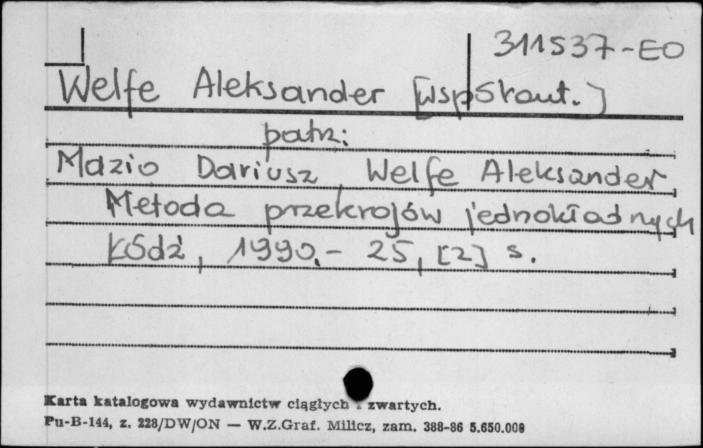 311537-EO
Welfe Aleksander [współaut.]
patrz:
Mazio Dariusz, Welfe Aleksander
Metoda przekrojów jednokładnych
Łódź, 1990.- 25, [2] s.
Karta katalogowa wydawnictw ciągłych i zwartych.
Pu-B-144, z. 228/DW/ON — W.Z.Graf. Milicz, zam. 388-86 5.650.000